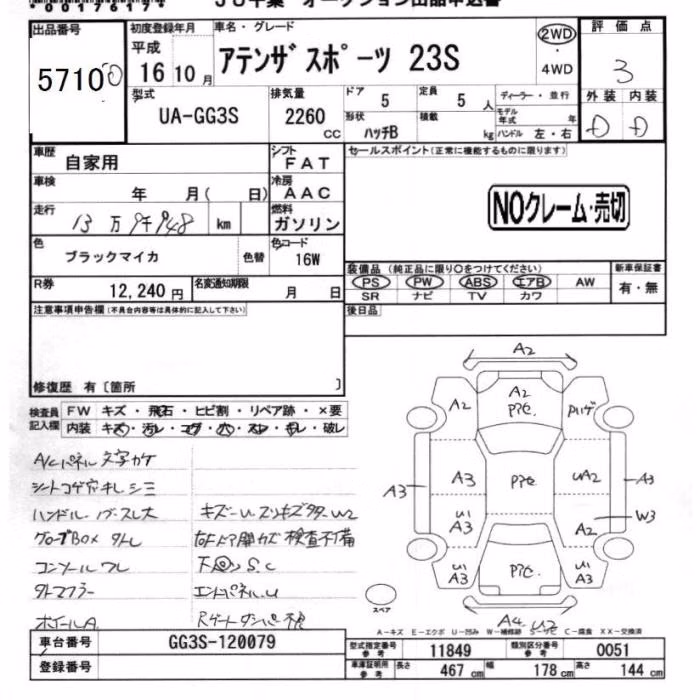 *00176174*
JU千葉 オークション出品申込書
出品番号 57100
初度登録年月 平成 16 10月
車名・グレード アテンザスポーツ 23S
2WD ・ 4WD
評価点 3
外装 D 内装 D
型式 UA-GG3S
排気量 2260 CC
ドア 5
定員 5 人
形状 ハッチB
積載 kg
ディーラー・並行
モデル年式 年
ハンドル 左・右
車歴 自家用
シフト FAT
車検 年 月( 日)
冷房 AAC
走行 13万9千948 km
燃料 ガソリン
色 ブラックマイカ 色替
色コード 16W
R券 12,240円
名変通知期限 月 日
セールスポイント(正常に機能するものに限ります)
NOクレーム・売切
装備品 (純正品に限り○をつけてください)
PS PW ABS エアB AW
SR ナビ TV カワ
新車保証書 有・無
後日品
注意事項申告欄(不具合内容等は具体的に記入して下さい)
修復歴 有〔箇所 〕
検査員記入欄
FW キズ・飛石・ヒビ割・リペア跡・×要
内装 キズ・汚レ・コゲ・穴・スレ・キレ・破レ
A/Cパネル文字カケ
シートコゲ穴キレシミ
ハンドル
グローブBOX
コンソールワレ
外マフラー
ホイールA
キズーU スリキズ多々 W2
検査不備
S.C
エンドパネルU
Rゲートダンパー不良
A2
A2
A2
A3
A3
U1
A3
U1
A3
UA2
A2
U1
A3
A3
W3
A4 U2
スペア
A-キズ E-エクボ U-凹み W-補修跡 S-サビ C-腐食 XX-交換済
車台番号 GG3S-120079
登録番号
型式指定番号 参考 11849
類別区分番号 参考 0051
車庫証明用 参考 長さ 467 cm 幅 178 cm 高さ 144 cm